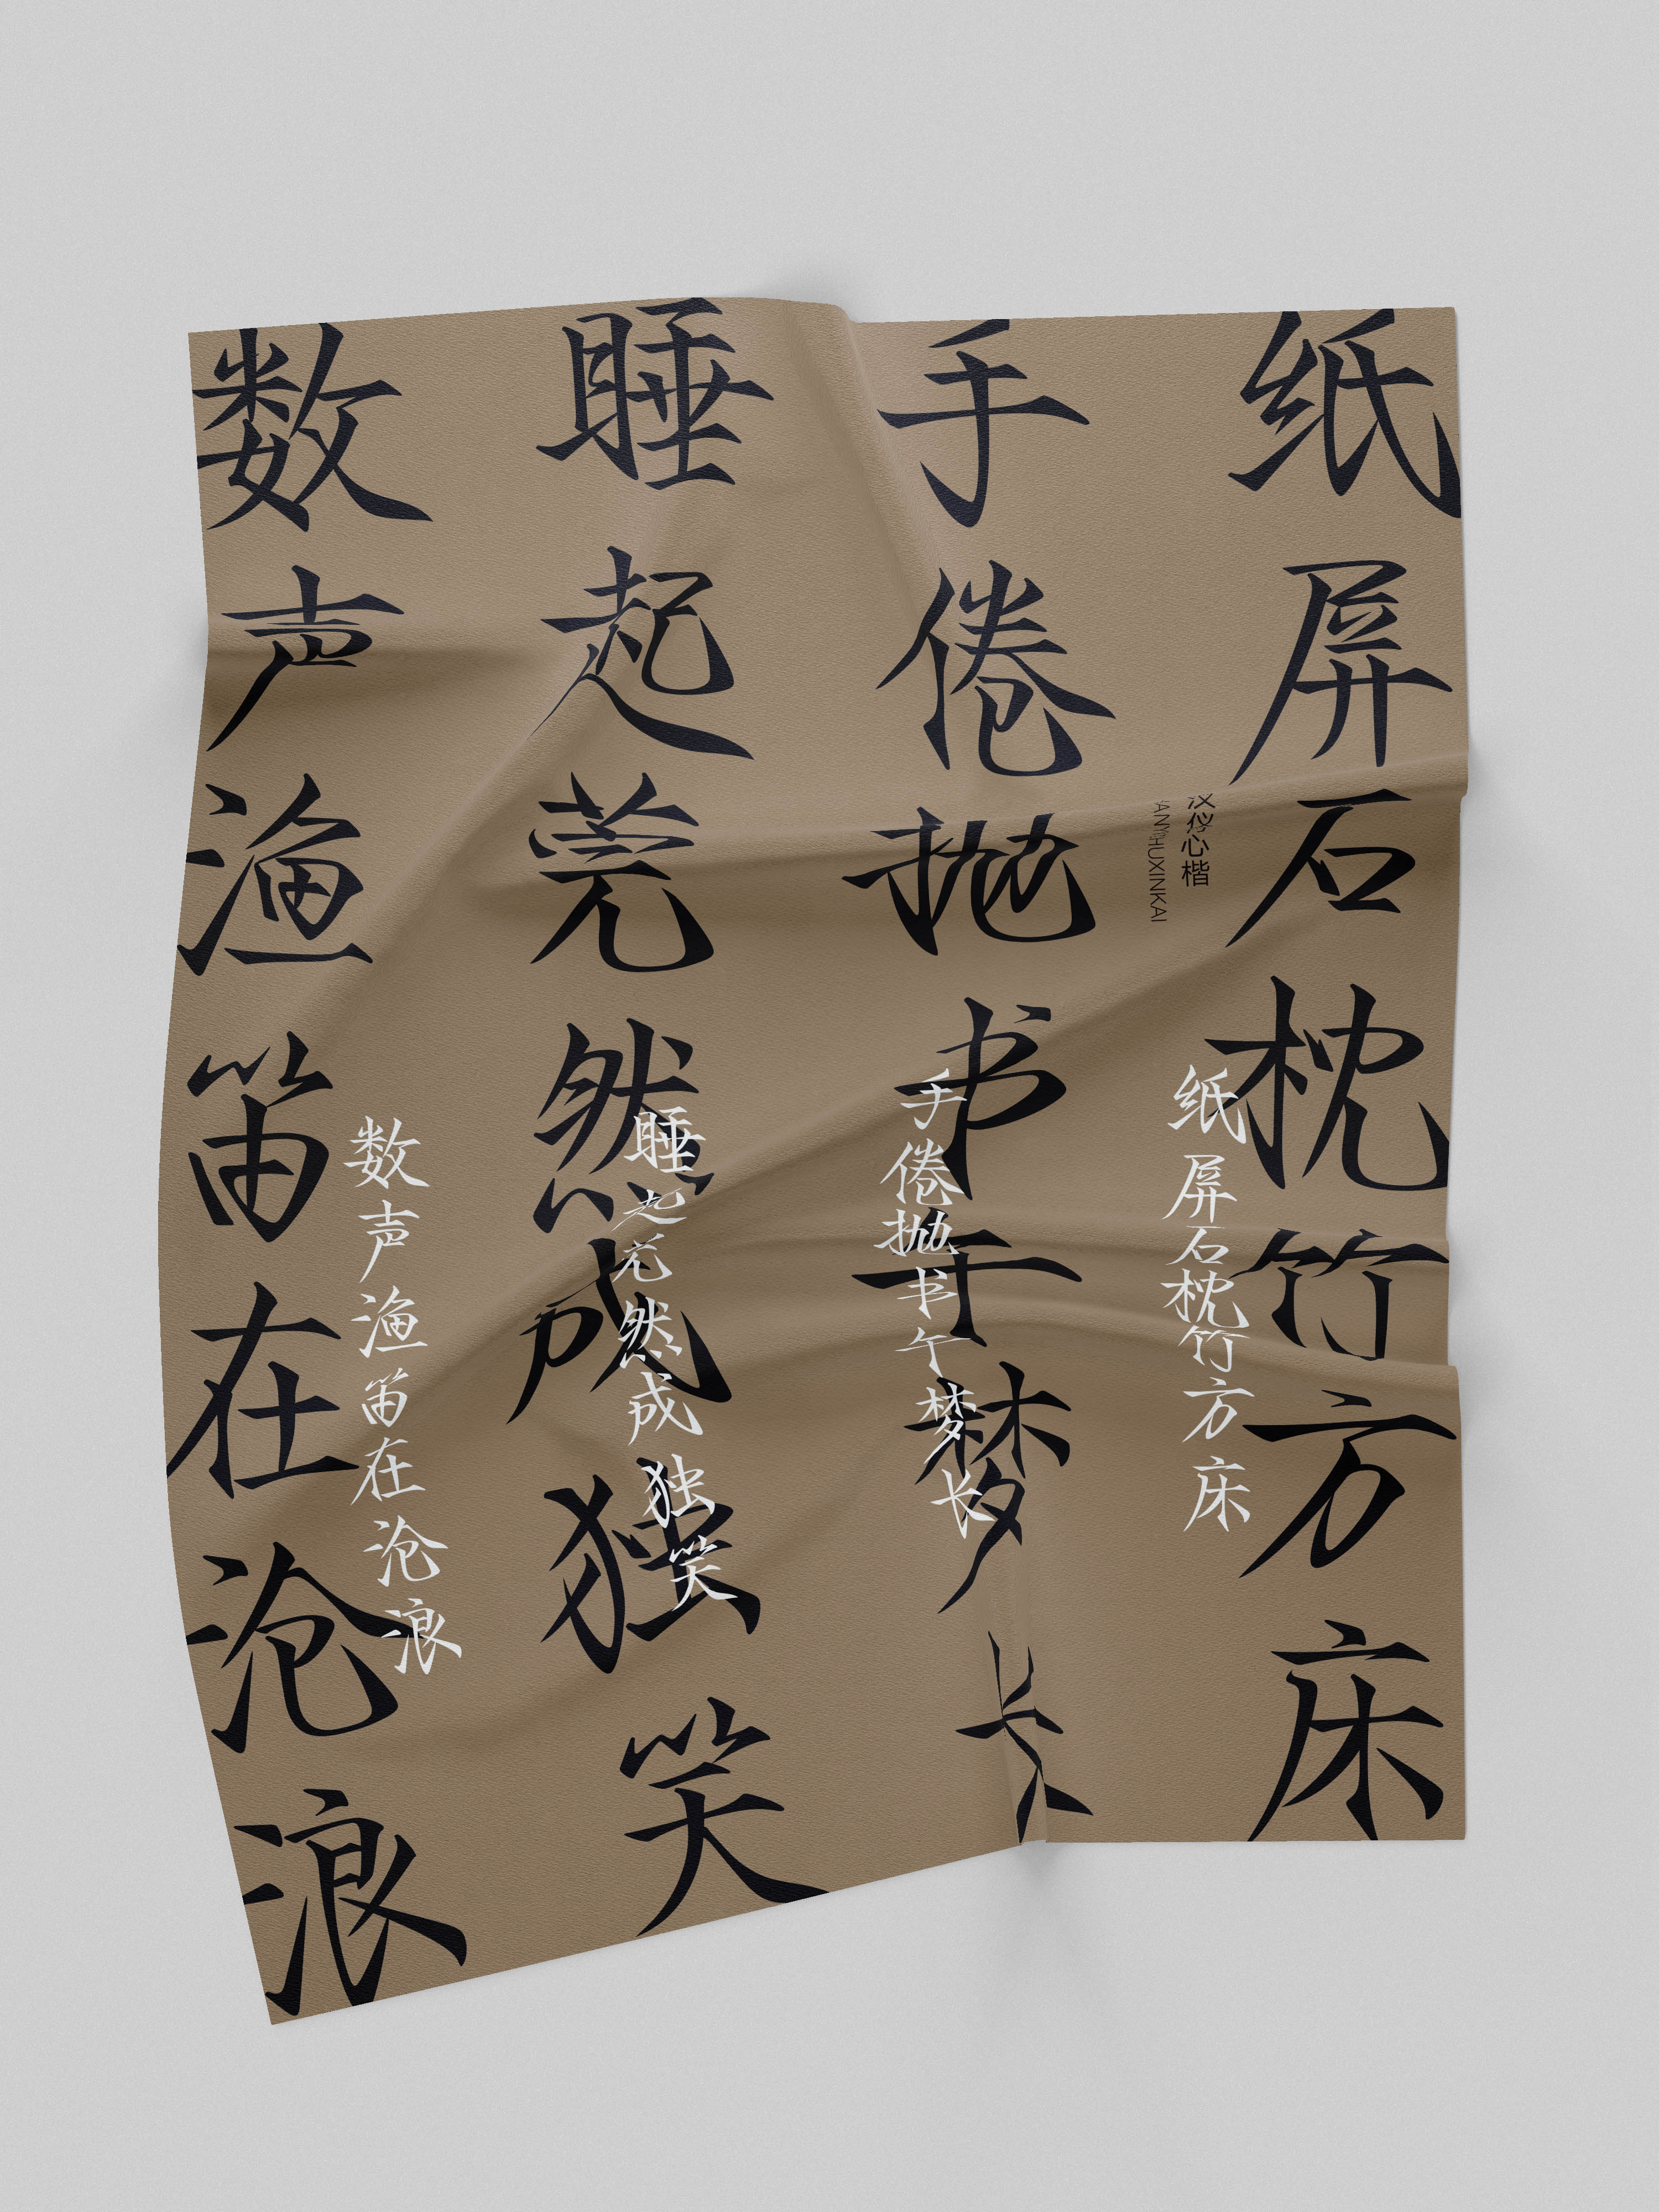 纸屏石枕竹方床
手倦抛书午梦长
睡起莞然成独笑
数声渔笛在沧浪
汉仪心楷
HUXINKAI
纸屏石枕竹方床
手倦抛书午梦长
睡起莞然成独笑
数声渔笛在沧浪